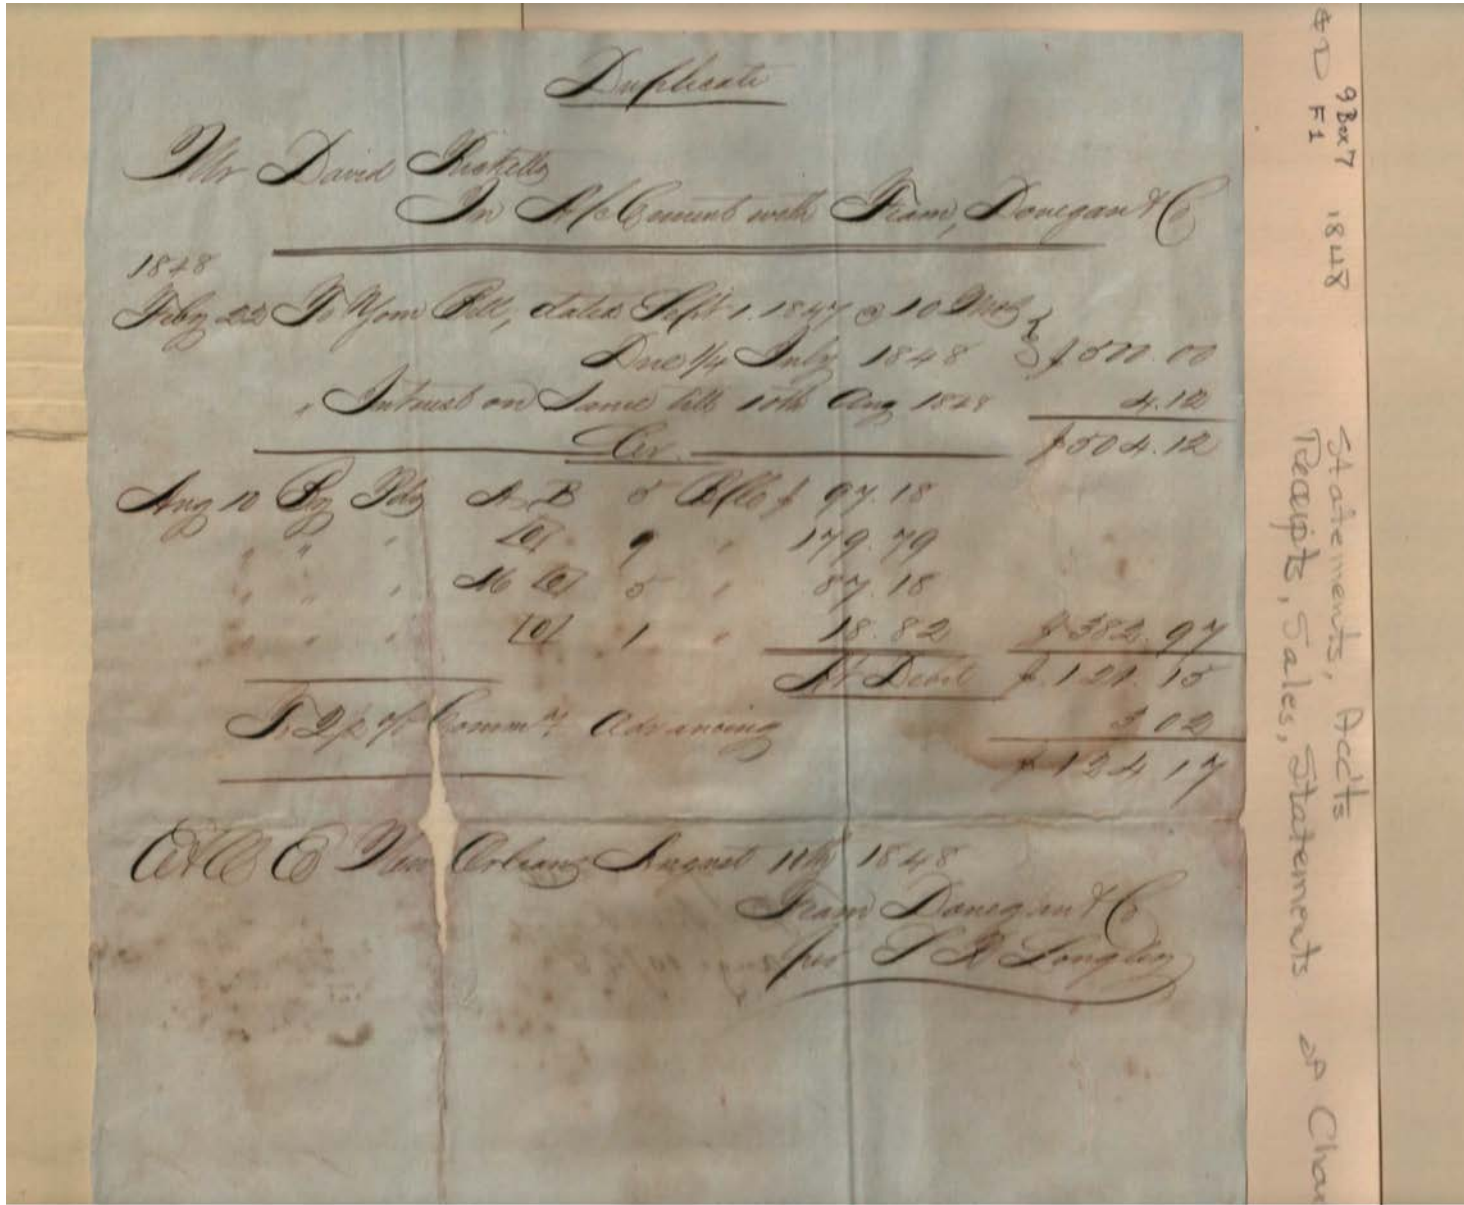 Duplicate
Mr David Ricketts
In A/c Current with Fearn, Donegan & Co
1848
Feby 22 To Your Bill, dated Sept 1. 1847 @ 10 Mos
Due 1/4 July 1848 $500.00
" Interest on Same till 10th Aug 1848 4.12
Cr. $504.12
Aug 10 By A B 5 $ 97.18
" " " [O] 9 " 179.79
" " " M [O] 5 " 87.18
" " " [O] 1 " 18.82 $382.97
Debit $121.15
To 2½ % Advancing 3 02
$124.17
E & O E New Orleans August 10th 1848
Fearn Donegan & Co
per S R Longley
9 Box 7 1848 Statements, Accts
& D F1 Receipts, Sales, Statements of Char